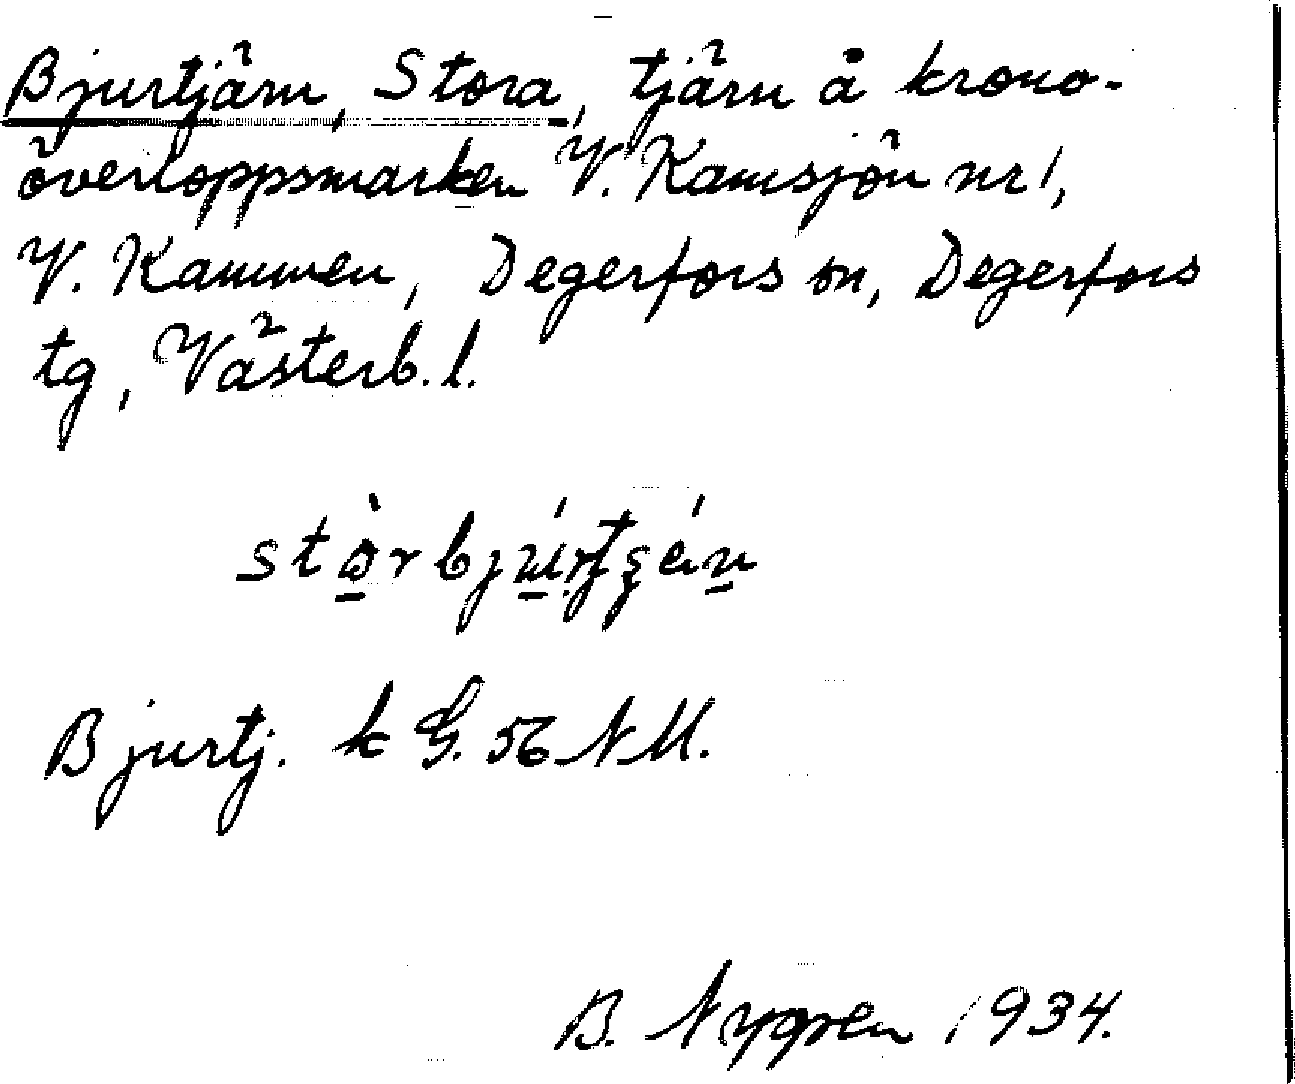 Bjurtjärn, Stora, tjärn å krono-
överloppsmarken V. Kamsjön nr 1,
V. Kammen, Degerfors sn, Degerfors
tg, Västerb. l.
Bjurtj. k G. 56 NM.
B. Nygren 1934.